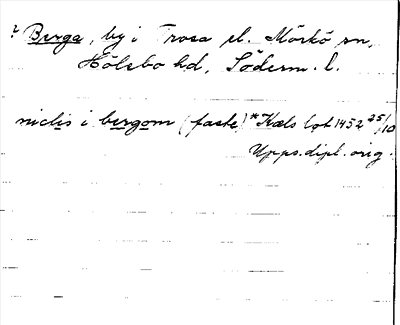 ? Berga, by i Trosa el. Mörkö sn,
Hölebo hd, Söderm. l.
niclis i bergom (faste) *Kæls lgt 1452 25/10
Upps. dipl. orig.